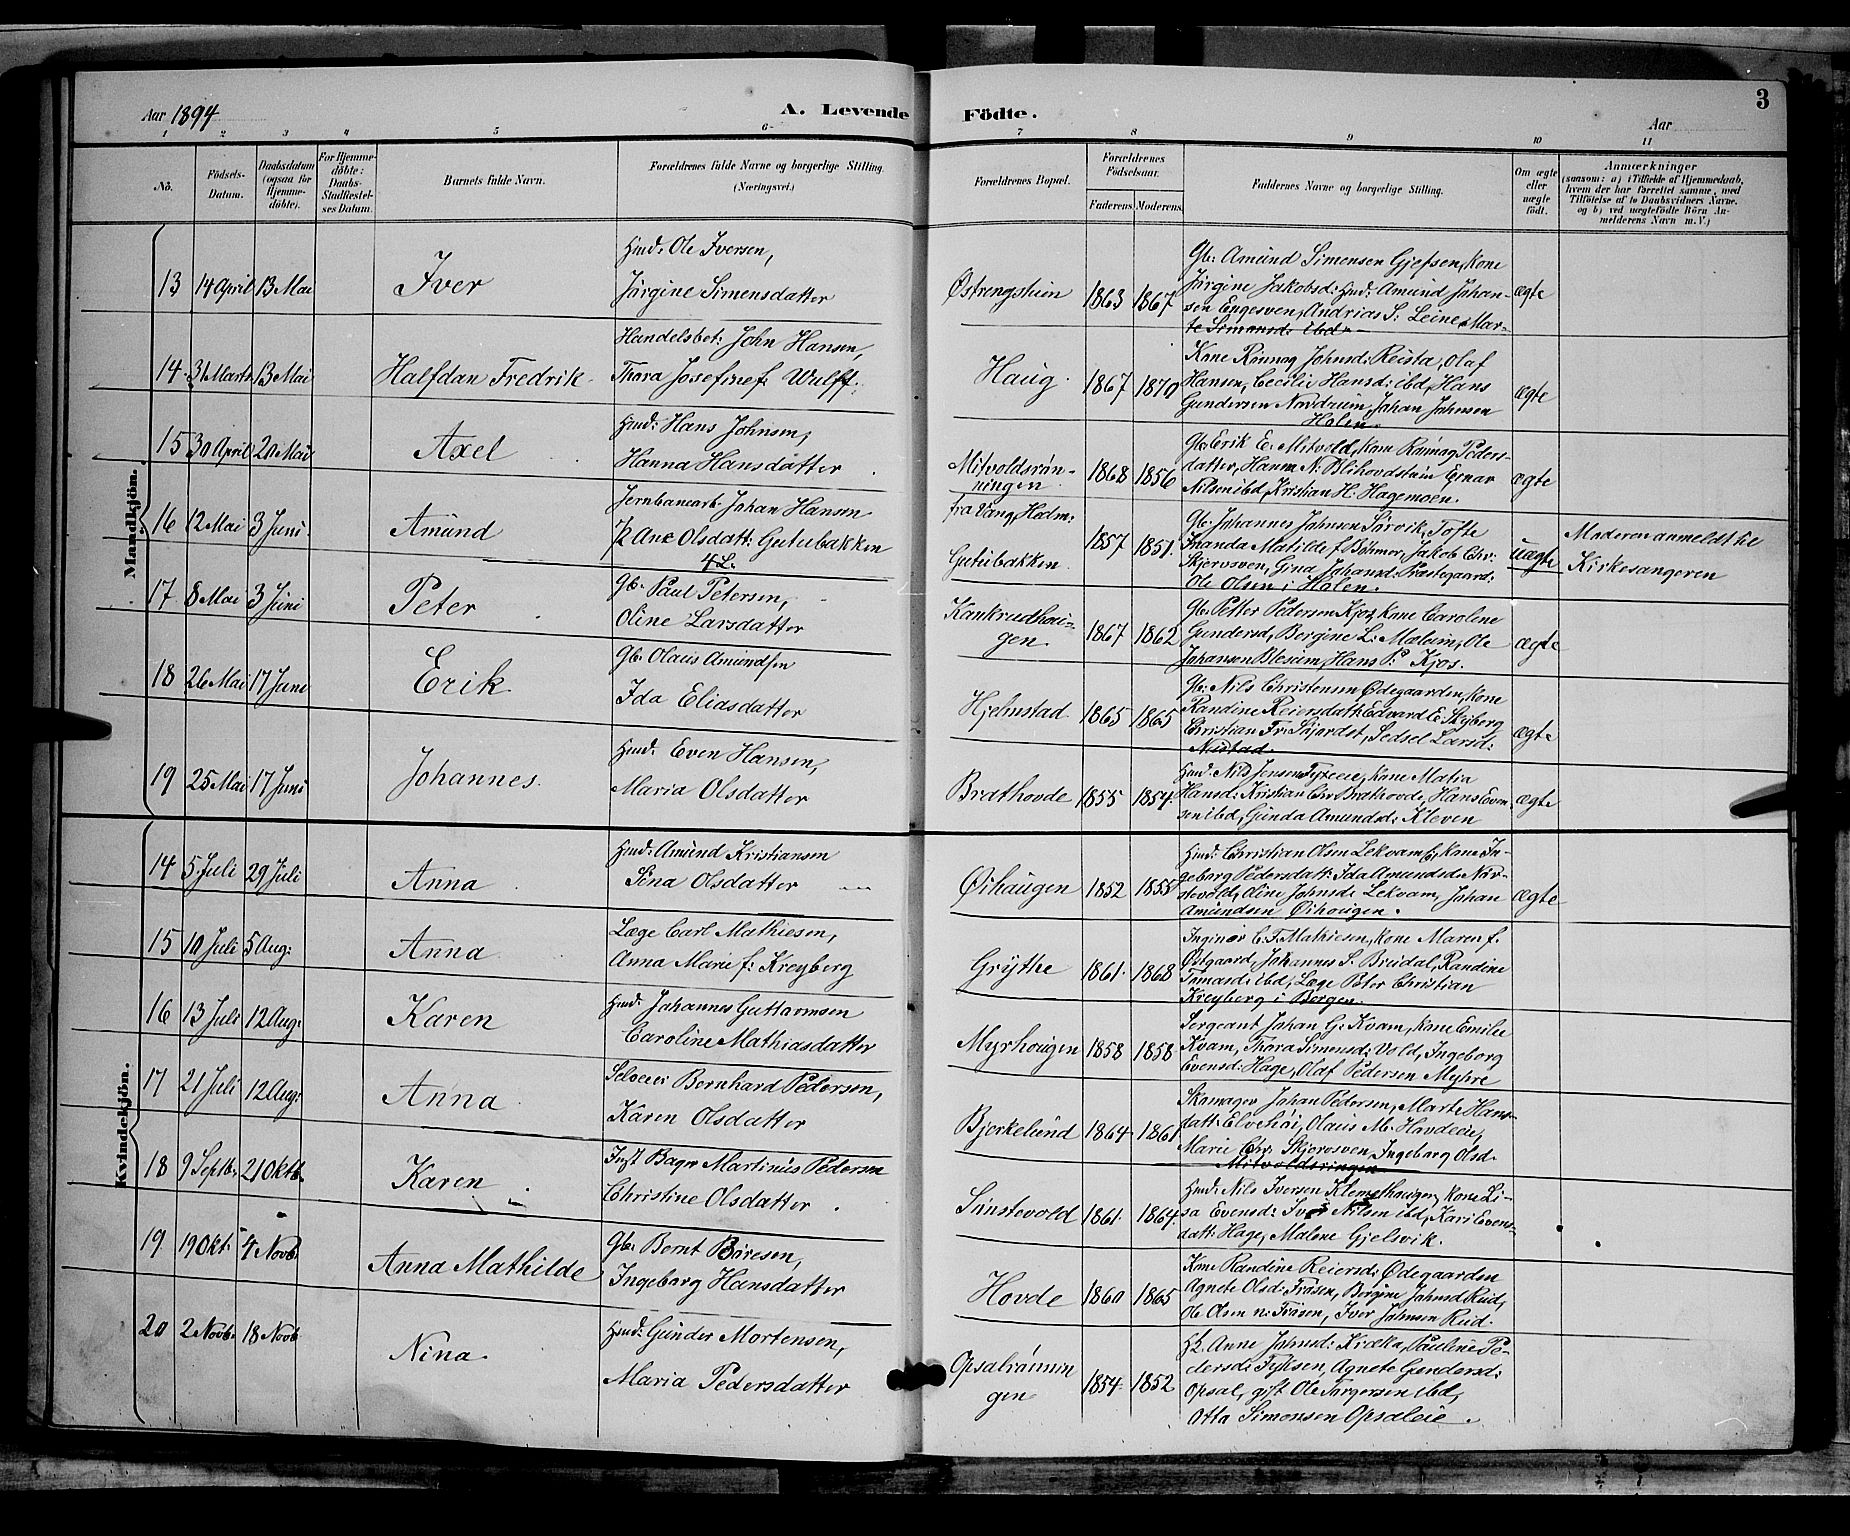 Aar 1894
A. Levende
Födte.
3
Aar
1 2 3 4 5 6 7 8 9 10 11
No.
Födsels-
Datum.
Daabsdatum
(ogsaa for
Hjemme-
döbte).
For Hjemme-
döbte:
Daabs-
Stadfæstel-
ses Datum.
Barnets fulde Navn.
Forældrenes fulde Navne og borgerlige Stilling.
(Næringsvei.)
Forældrenes Bopæl.
Forældrenes
Födselsaar.
Faderens.
Moderens.
Faddernes Navne og borgerlige Stilling.
Om ægte
eller
uægte
födt.
Anmærkninger
(saasom: a) i Tilfælde af Hjemmedaab,
hvem der har forrettet samme, med
Tilföielse af to Daabsvidners Navne,
og b) ved uægtefödte Börn An-
melderens Navn m. V.)
Mandkjön.
13 14 April 13 Mai Iver
Hmd: Ole Iversen,
Jörgine Simensdatter
Østrengstuen 1863 1867
Gb: Amund Simensen Gjefsen, kone
Jörgine Jakobsd: Hmd: Amund Johan-
sen Engesven, Andrias S: Leine, Mar-
te Simensd: ibd
ægte
14. 31 Marts 13 Mai Halfdan Fredrik
Handelsbet: John Hansen,
Thora Josefine f: Wulff.
Haug. 1867 1870
Kone Rönnog Johnsd: Reista, Olaf
Hansen, Cecilie Hansd: ibd, Hans
Gundersen Nordrum, Johan Johnsen
Holen.
ægte
15 30 April 20 Mai Axel
Hmd: Hans Johnsen,
Hanna Hansdatter
Mitvoldsrön-
ningen 1868 1856
Gb: Erik E. Mitvold, kone Rönnog Peders-
datter, Hanna N: Blihovdstuen Einar
Nilsen ibd, Kristian H: Hagemoen.
ægte
16 12 Mai 3 Juni Amund
Jernbanearb: Johan Hansen
P. Ane Olsdatt: Gutubakken
4 L.
fra Vang, Hedm:
Gutubakken 1857 1851
Gb. Johannes Johnsen Sörvik, Tofte
Inanda Matilde f. Böhmer, Jakob Chr:
Skjerosven, Gina Johansd: Præstegaard:
Ole Olsen i Holen.
uægte
Moderen anmeldt til
Kirkesangeren
17 8 Mai 3 Juni Peter
Gb. Paul Petersen,
Oline Larsdatter
Kankrudhau-
gen 1867 1862
Gb. Petter Pedersen Kjos, kone Carolene
Gundersd, Bergine L: Mælum, Ole
Johansen Blesum, Hans P: Kjos.
ægte
18 26 Mai 17 Juni Erik
Gb. Olaus Amundsen
Ida Eliasdatter
Hjelmstad 1865 1865
Gb. Nils Christensen Ødegaarden, kone
Randine Reiersdatt: Edvard E. Skjberg
Christian Fr: Skjordst, Sedsel Larsd:
Nustad
ægte
19 25 Mai 17 Juni Johannes.
Hmd: Even Hansen,
Maria Olsdatter
Brathovde 1855 1854.
Hmd: Nils Jensen, kone Matia
Hansd: Kristian Chr Brathovde, Hans Even-
sen ibd, Gunda Amundsd: Kleven
ægte
Kvindekjön.
14 5 Juli 29 Juli Anna
Hmd: Amund Kristiansen
Sina Olsdatter
Øihaugen 1852 1855
Hmd: Christian Olsen Lekvam, kone In-
geborg Pedersdatt: Ida Amundsd: Nör-
stevold, Oline Johnsd: Lekvam, Johan
Amundsen Øihougen.
ægte
15 10 Juli 5 Aug: Anna
Læge Carl Mathiesen,
Anna Marie f: Kreyberg
Grythe 1861. 1868
Inginör C. F. Mathiesen, kone Maren f.
Östgaard, Johannes S. Bredal, Randine
Tomasd: ibd, Læge Peter Christian
Kreyberg i Bergen.
16 13 Juli 12 Aug: Karen
Hmd: Johannes Guttormsen
Caroline Mathiasdatter
Myrhougen 1858 1858
Sergeant Johan G: Kvam, kone Emilie
Kvam, Thora Simensd: Vold, Ingeborg
Evensd: Hage, Olaf Pedersen Myhre
17 21 Juli 12 Aug: Anna
Selveier Bernhard Pedersen,
Karen Olsdatter
Bjerkelund 1864 1861
Skomager Johan Pedersen, Marte Hans-
datt: Elvehöi, Olaus M. Hovdeeie,
Marie Chr: Skjerosven, Ingeborg Olsd.
Mitvoldsringen
18 9 Septb. 21 Oktb. Karen
Inst Bager Martinus Pedersen
Christine Olsdatter
Sinstevold 1861. 1864.
Hmd: Nils Iversen Klemethaugen, kone Li-
sa Evensd: Iver Nilsen ibd, Kari Evens-
datt: Hage, Malene Gjelsvik.
19 19 Okt: 4 Novb. Anna Mathilde
Gb. Bernt Böresen,
Ingeborg Hansdatter
Hovde 1860 1865
Kone Randine Reiersd: Ødegaarden
Agnete Olsd: Frösen, Bergine Johnsd Rud,
Ole Olsen n: Frösen, Iver Johnsen Rud.
20 2 Novb. 18 Novb Nina.
Hmd: Gunder Mortensen,
Maria Pedersdatter
Opsalrönnin
gen 1854. 1852
Anne Johnsd: Kræka, Pauline Pe-
dersd: Fyksen, Agnete Gundersd:
Opsal, gift Ole Torgersen ibd,
Otta Simonsen Opsaleie.